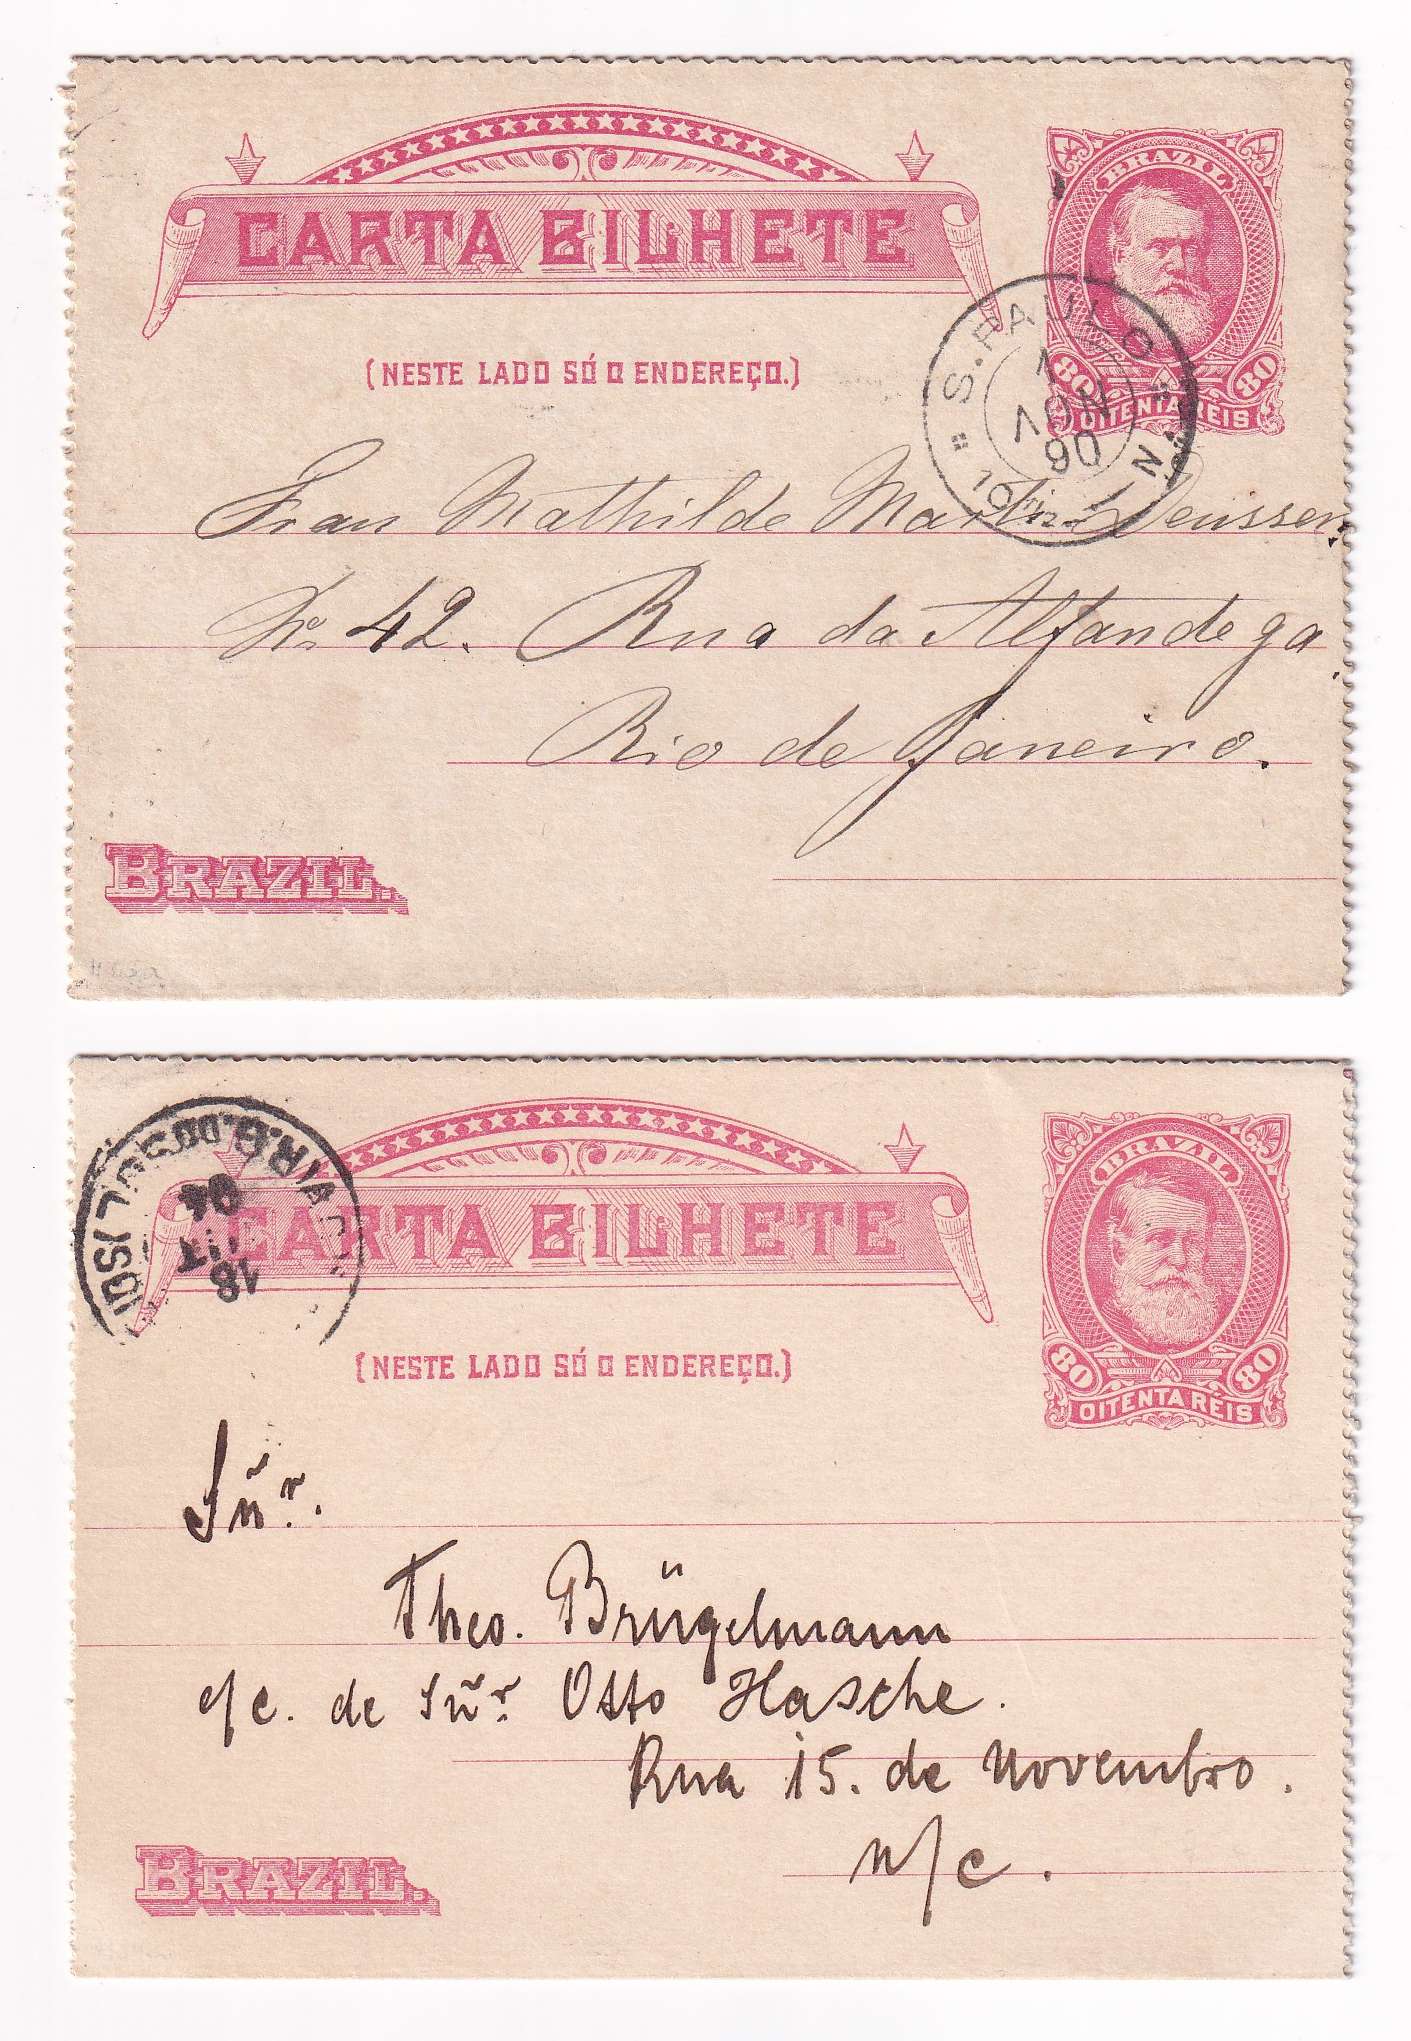 CARTA BILHETE
BRAZIL
(NESTE LADO SÓ O ENDEREÇO.)
80 80
OITENTA RÉIS
S. PAULO
1
NOV
90
Frau Mathilde Martin Deussen.
No 42. Rua da Alfandega.
Rio de Janeiro.
BRAZIL.
CARTA BILHETE
BRAZIL
18
04
(NESTE LADO SÓ O ENDEREÇO.)
80 80
OITENTA RÉIS
Sñr.
Theo. Brügelmann
c/c. de Sñr. Otto Hasche.
Rua 15. de Novembro.
n/c.
BRAZIL.